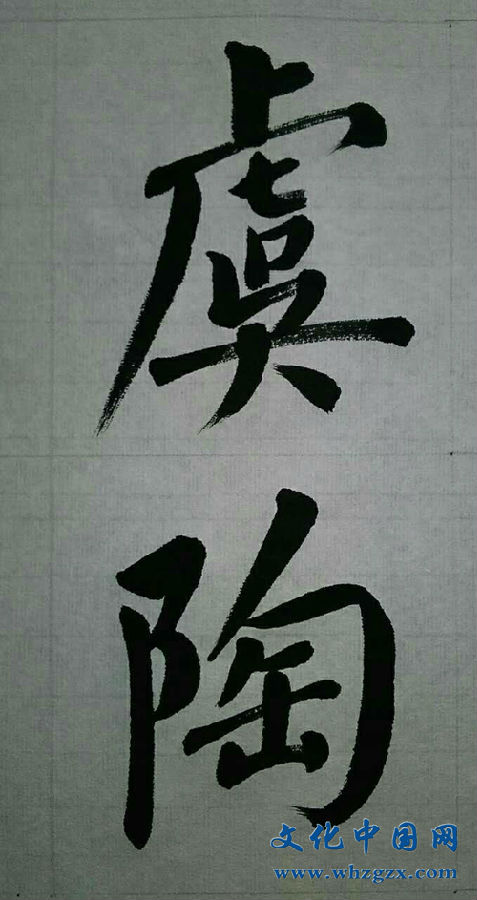 虞
陶
文化中国网
www.whzgzx.com